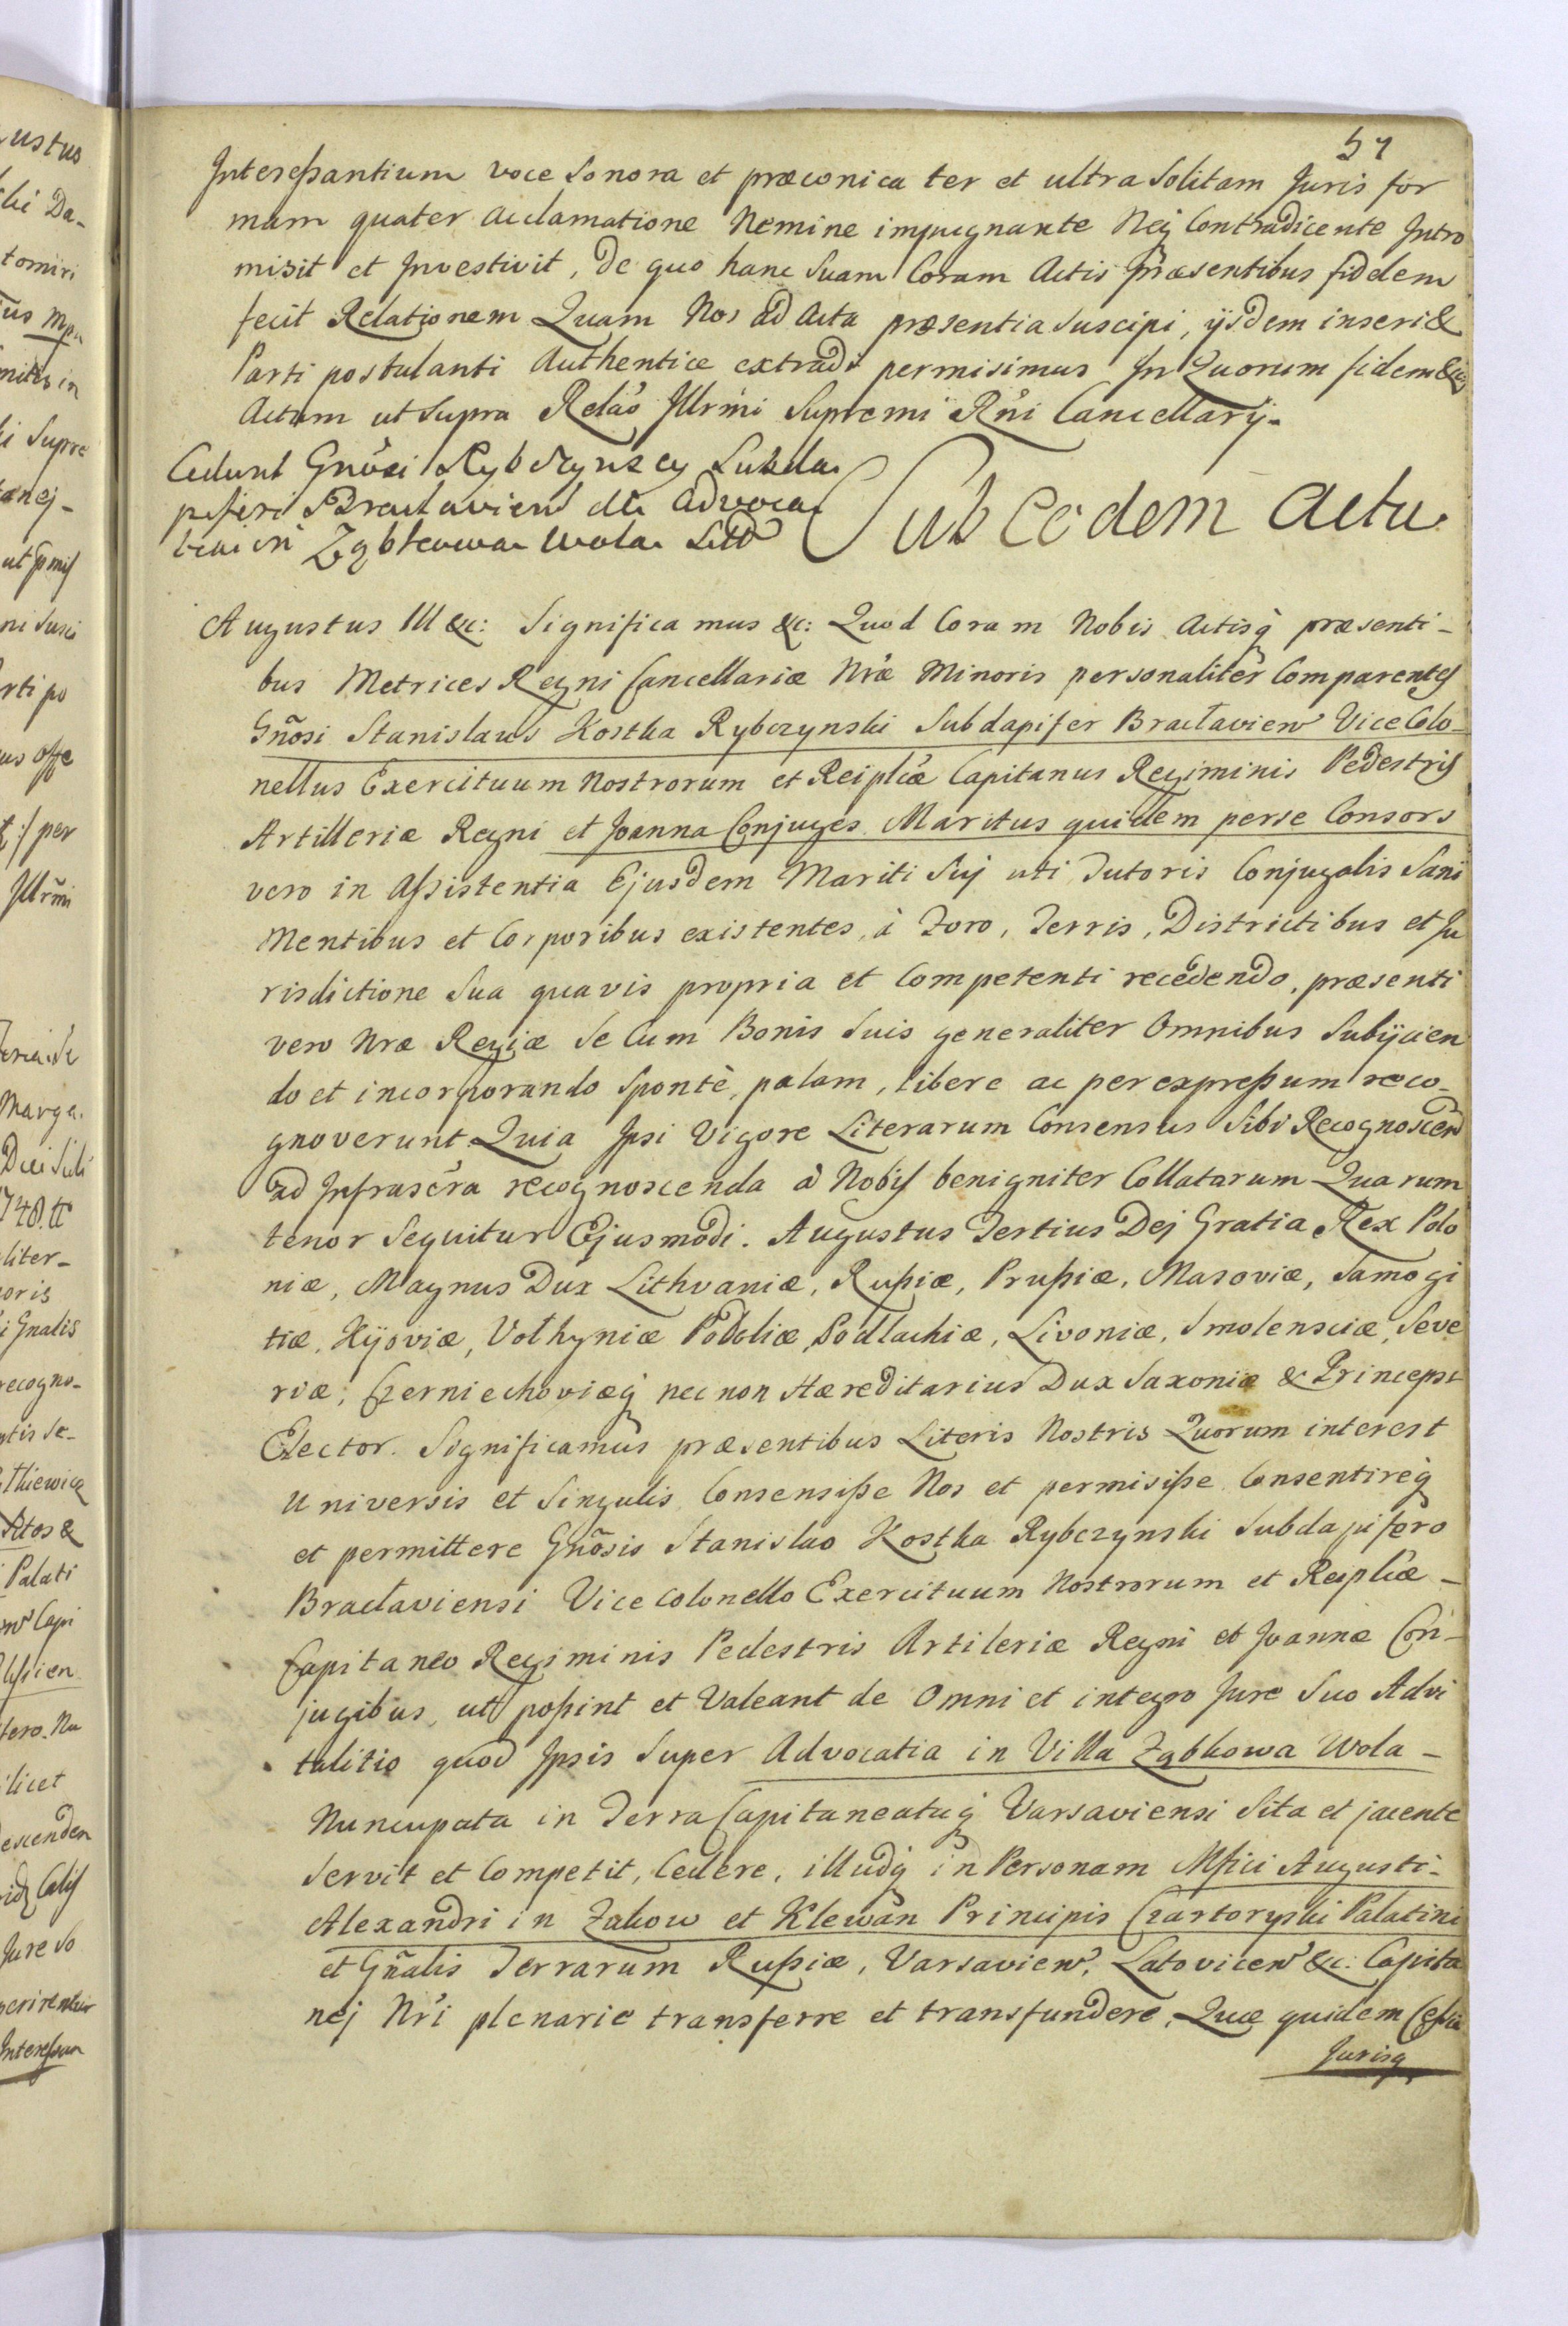 57
Interessantium voce Sonora et præconica ter et ultra Solitam Juris for
mam quater acclamatione Nemine impugnante Neq Contradicente Intro
misit et Investivit, De quo hanc Suam Coram Actis Præsentibus fidelem
fecit Relationem Quam Nos ad Acta præsentia Suscipi, ijsdem inseri &
Parti postulanti Authentice extradi permisimus In Quorum fidem &c
Actum ut Supra Relão Illrmi Supremi Rni Cancellarij.
Cedunt Gnosi Rybczynscy Subda
piferi Braclavien de Advoca
tia in Ząbkowa Wola
Sub eodem Actu
Augustus III &c: Significamus &c: Quod Coram Nobis Actisq præsenti-
bus Metrices Regni Cancellariæ Nræ Minoris personaliter Comparentes
Gnosi Stanislaus Kostka Rybczynski Subdapifer Braclavien Vice Colo-
nellus Exercituum Nostrorum et Reiplcæ Capitanus Regiminis Pedestris
Artilleriæ Regni et Joanna Conjuges Maritus quidem per se Consors
vero in Assistentia Ejusdem Mariti Sui uti Tutoris Conjugalis Sani
Mentibus et Corporibus existentes, à Foro, Terris, Districtibus et Ju
risdictione Sua quavis propria et Competenti recedendo, præsenti
vero Nræ Regiæ Se Cum Bonis Suis generaliter Omnibus Subijcien
do et incorporando Spontè, palam, libere ac per expressum reco-
gnoverunt Quia Ipsi Vigore Literarum Consensus Sibi Recognoscen
ad Infrascra recognoscenda à Nobis benigniter Collatarum Quarum
tenor Sequitur Ejusmodi. Augustus Tertius Dej Gratia Rex Polo
niæ, Magnus Dux Lithvaniæ, Russiæ, Prussiæ, Masoviæ, Samogi
tiæ, Kijoviæ, Volhyniæ Podoliæ, Podlachiæ, Livoniæ, Smolensciæ, Seve
riæ, Czerniechoviæq nec non Hæreditarius Dux Saxoniæ & Princeps
Elector. Significamus præsentibus Literis Nostris Quorum interest
Universis et Singulis Consensisse Nos et permisisse Consentireq
et permittere Gnosis Stanislao Kostka Rybczynski Subdapifero
Braclaviensi Vice Colonello Exercituum Nostrorum et Reiplcæ -
Capitaneo Regiminis Pedestris Artileriæ Regni et Joannæ Con-
jugibus, ut possint et Valeant de Omni et integro Jure Suo Advi
talitio quod Ipsis Super Advocatia in Villa Ząbkowa Wola -
Nuncupata in Terra Capitaneatuq Varsaviensi Sita et jacente
Servit et Competit, Cedere, illudq in Personam Mfici Augusti -
Alexandri in Zukow et Klewan Principis Czartoryski Palatini
et Gnalis Terrarum Russiæ, Varsavien, Latovicen &c: Capita
nej Nri plenarie transferre et transfundere, Quæ quidem Cessio
Jurisq